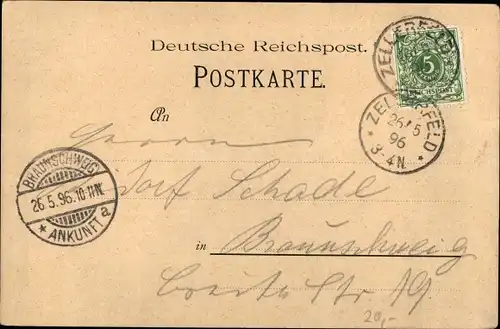 Deutsche Reichspost.
POSTKARTE.
ZELLERFELD
5
ZELLERFELD
26/5
96
3-4N
An
Herrn
Schade
BRAUNSCHWEIG
26.5.96.10-11N.
ANKUNFT a
in Braunschweig
Breite Str 19
20,-